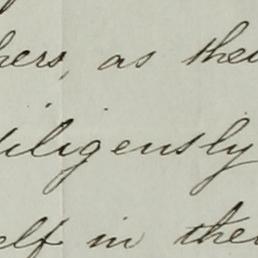 hers, as thei
diligensly
elf in thei